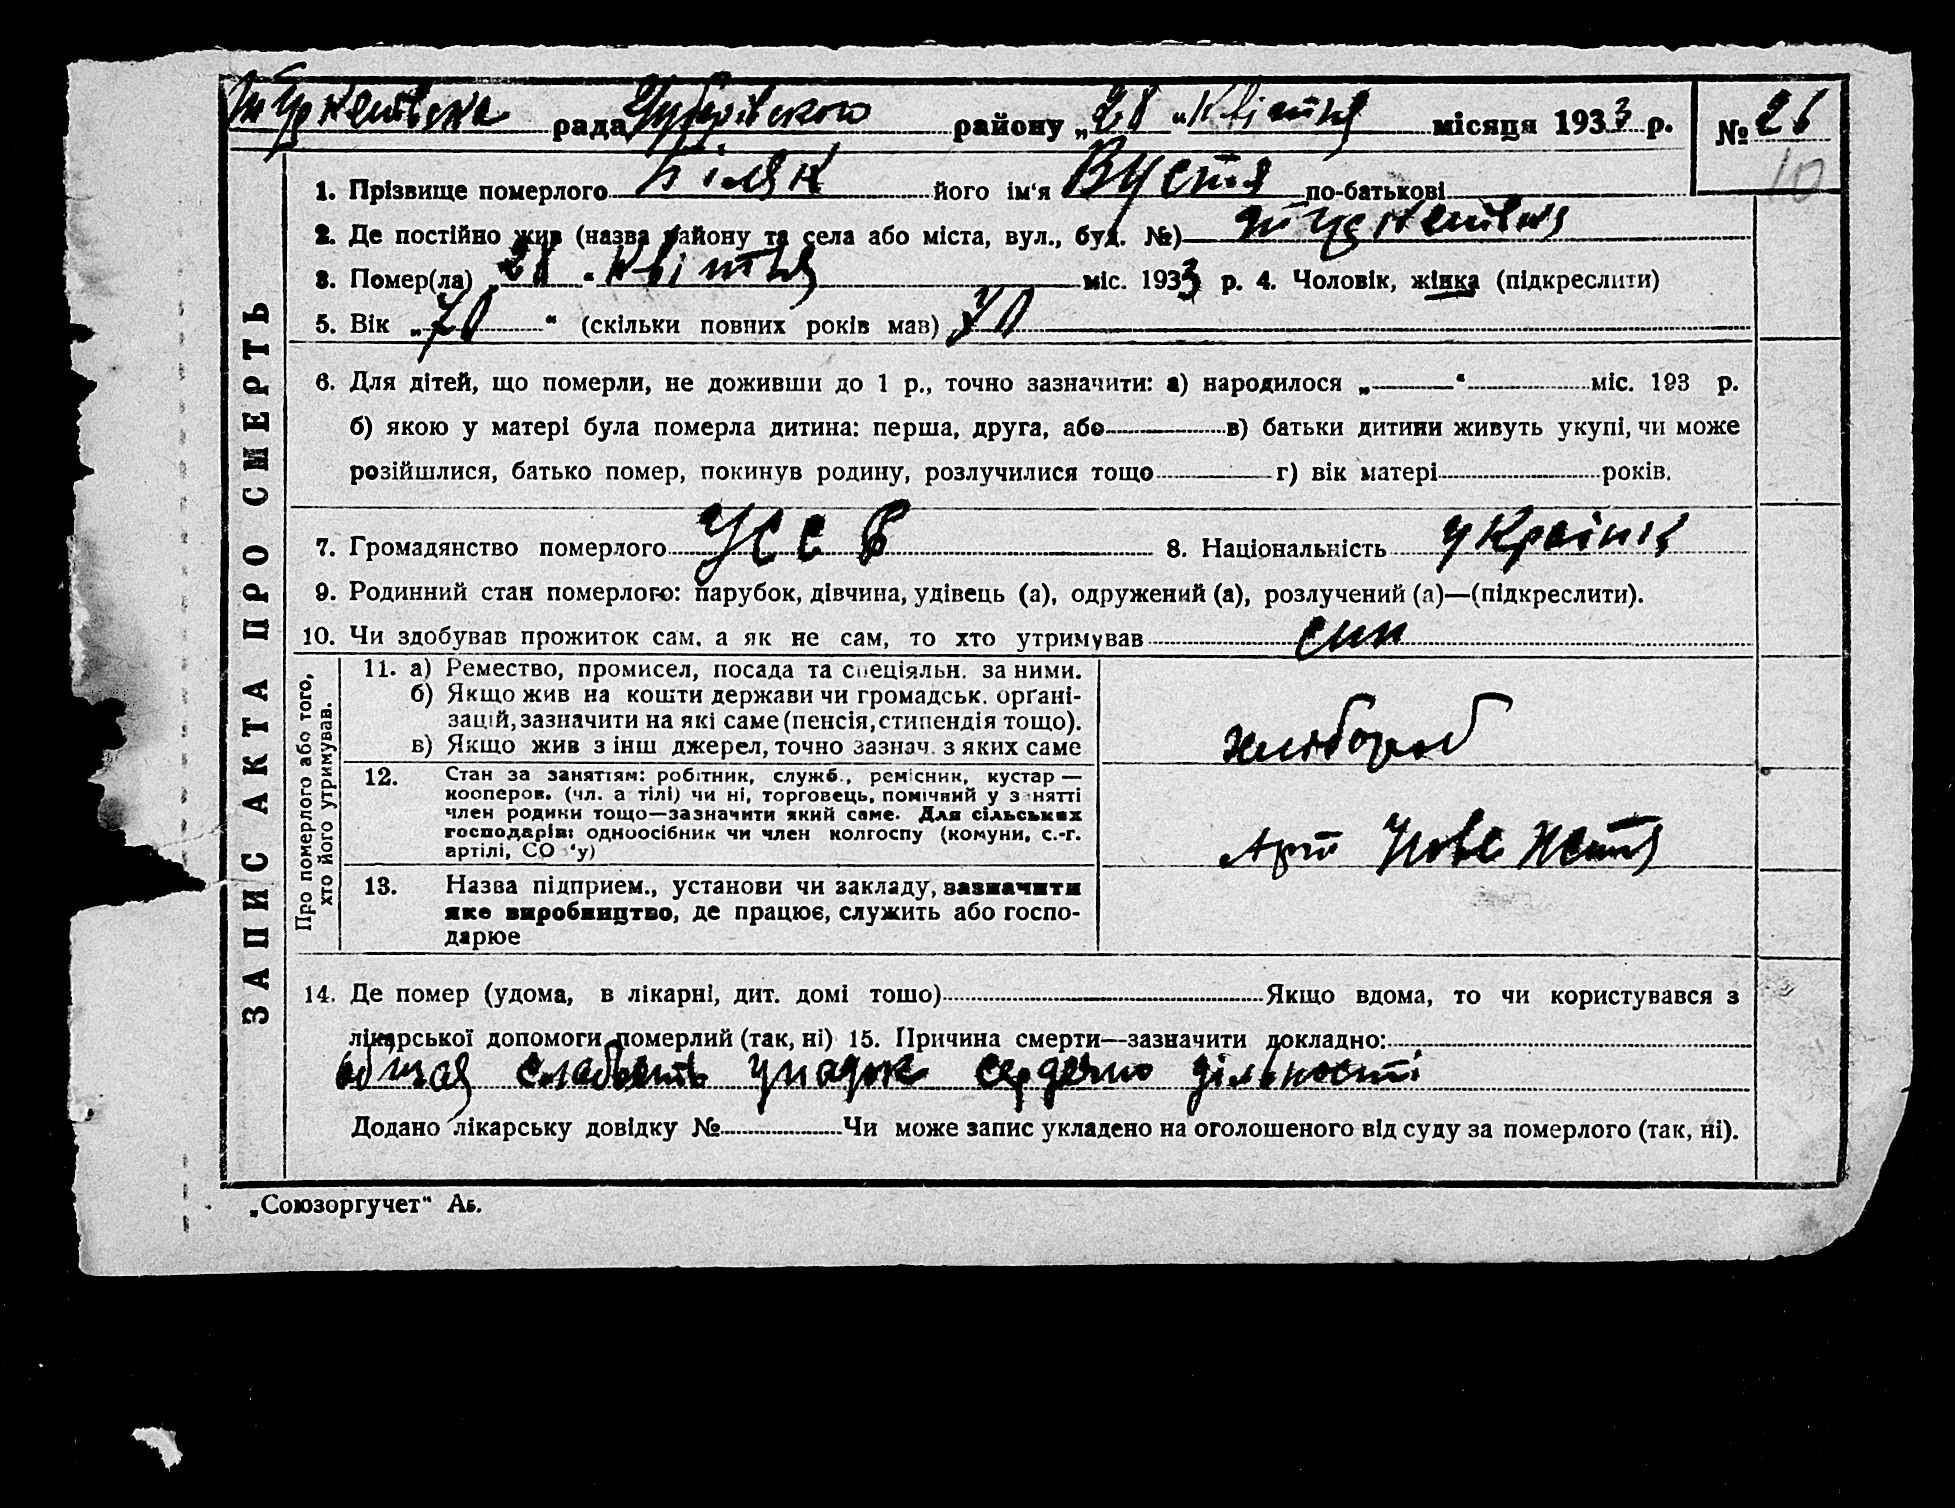 рада Чубарівського району „28 “ Квітня місяця 1933 р. № 26
10
ЗАПИС АКТА ПРО СМЕРТЬ
1. Прізвище померлого Біляк його ім'я Вустя по-батькові
2. Де постійно жив (назва району та села або міста, вул., буд. №)
3. Помер(ла) „28 “ Квітня міс. 1933 р. 4. Чоловік, жінка (підкреслити)
5. Вік „70 “ (скільки повних років мав) 70
6. Для дітей, що померли, не доживши до 1 р., точно зазначити: а) народилося „ “ міс. 193 р.
б) якою у матері була померла дитина: перша, друга, або в) батьки дитини живуть укупі, чи може
розійшлися, батько помер, покинув родину, розлучилися тощо г) вік матері років.
7. Громадянство померлого УССР 8. Національність україн
9. Родинний стан померлого: парубок, дівчина, удівець (а), одружений (а), розлучений (а)—(підкреслити).
10. Чи здобував прожиток сам, а як не сам, то хто утримував син
Про померлого або того,
хто його утримував.
11. а) Ремество, промисел, посада та спеціяльн. за ними.
б) Якщо жив на кошти держави чи громадськ. орґані-
зацій, зазначити на які саме (пенсія, стипендія тощо).
в) Якщо жив з інш джерел, точно зазнач. з яких саме
хлібороб
12. Стан за заняттям: робітник, служб., ремісник, кустар —
кооперов. (чл. а тілі) чи ні, торговець, помічний у з нятті
член родини тощо—зазначити який саме. Для сільських
господарів: одноосібник чи член колгоспу (комуни, с.-г.
артілі, СО 'у)
Арт Нове Життя
13. Назва підприєм., установи чи закладу, зазначити
яке виробництво, де працює, служить або госпо-
дарює
14. Де помер (удома, в лікарні, дит. домі тощо) Якщо вдома, то чи користувався з
лікарської допомоги померлий (так, ні) 15. Причина смерти—зазначити докладно:
общая слабость упадок сердечно дільності
Додано лікарську довідку № Чи може запис укладено на оголошеного від суду за померлого (так, ні).
„Союзоргучет“ Аб.